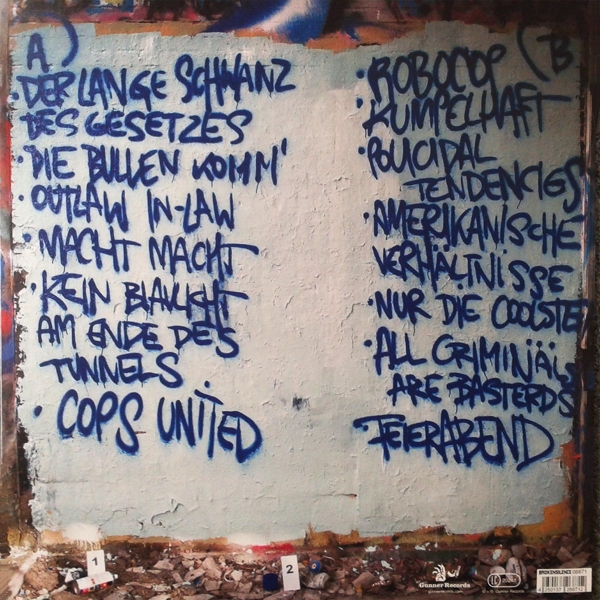 A)
DER LANGE SCHWANZ
DES GESETZES
· DIE BULLEN KOMM'
· OUTLAW IN-LAW
· MACHT MACHT
· KEIN BLAULICHT
AM ENDE DES
TUNNELS
· COPS UNITED
(B
· ROBOCOP
· KUMPELHAFT
· POLICIDAL
TENDENCIES
· AMERIKANISCHE
VERHÄLTNISSE
· NUR DIE COOLSTEN
· ALL CRIMINÄLS
ARE BASTERDS
FEIERABEND
1
2
Gunner Records
gunnerrecords.com
BROKENSILENCE 06671